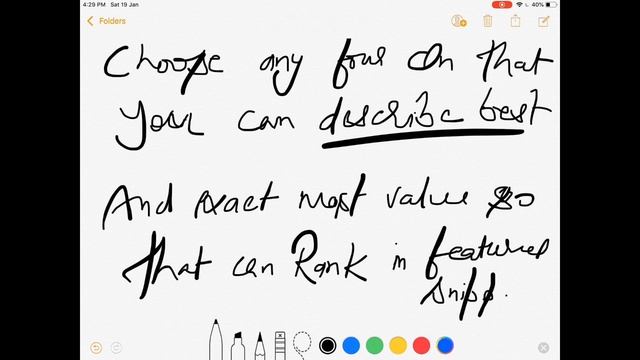 4:29 PM Sat 19 Jan
40%
Folders
Choose any four On that
your can describe best
And exact most value so
that can Rank in featured